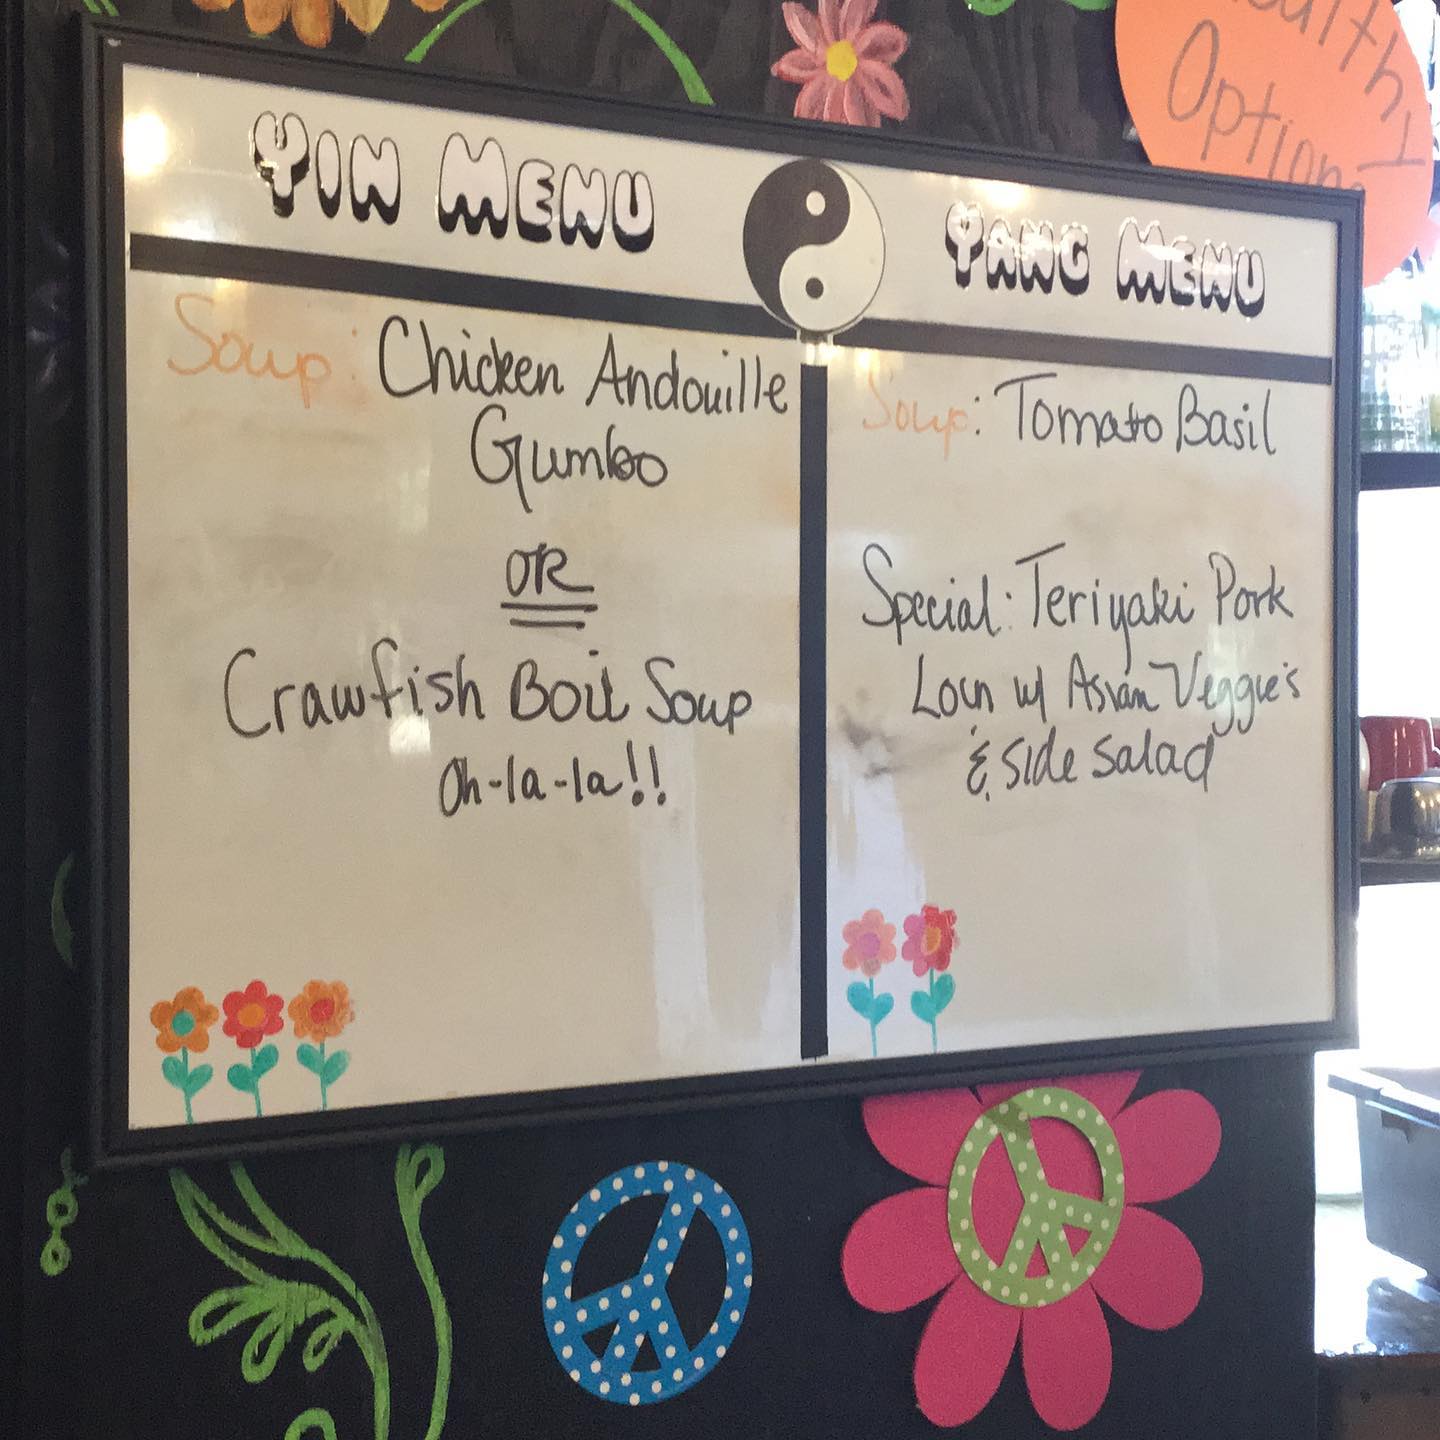 Option
YIN MENU
YANG MENU
Soup: Chicken Andouille
Gumbo
OR
Crawfish Boil Soup
Oh-la-la!!
Soup: Tomato Basil
Special: Teriyaki Pork
Loin w/ Asian Veggie's
& Side Salad